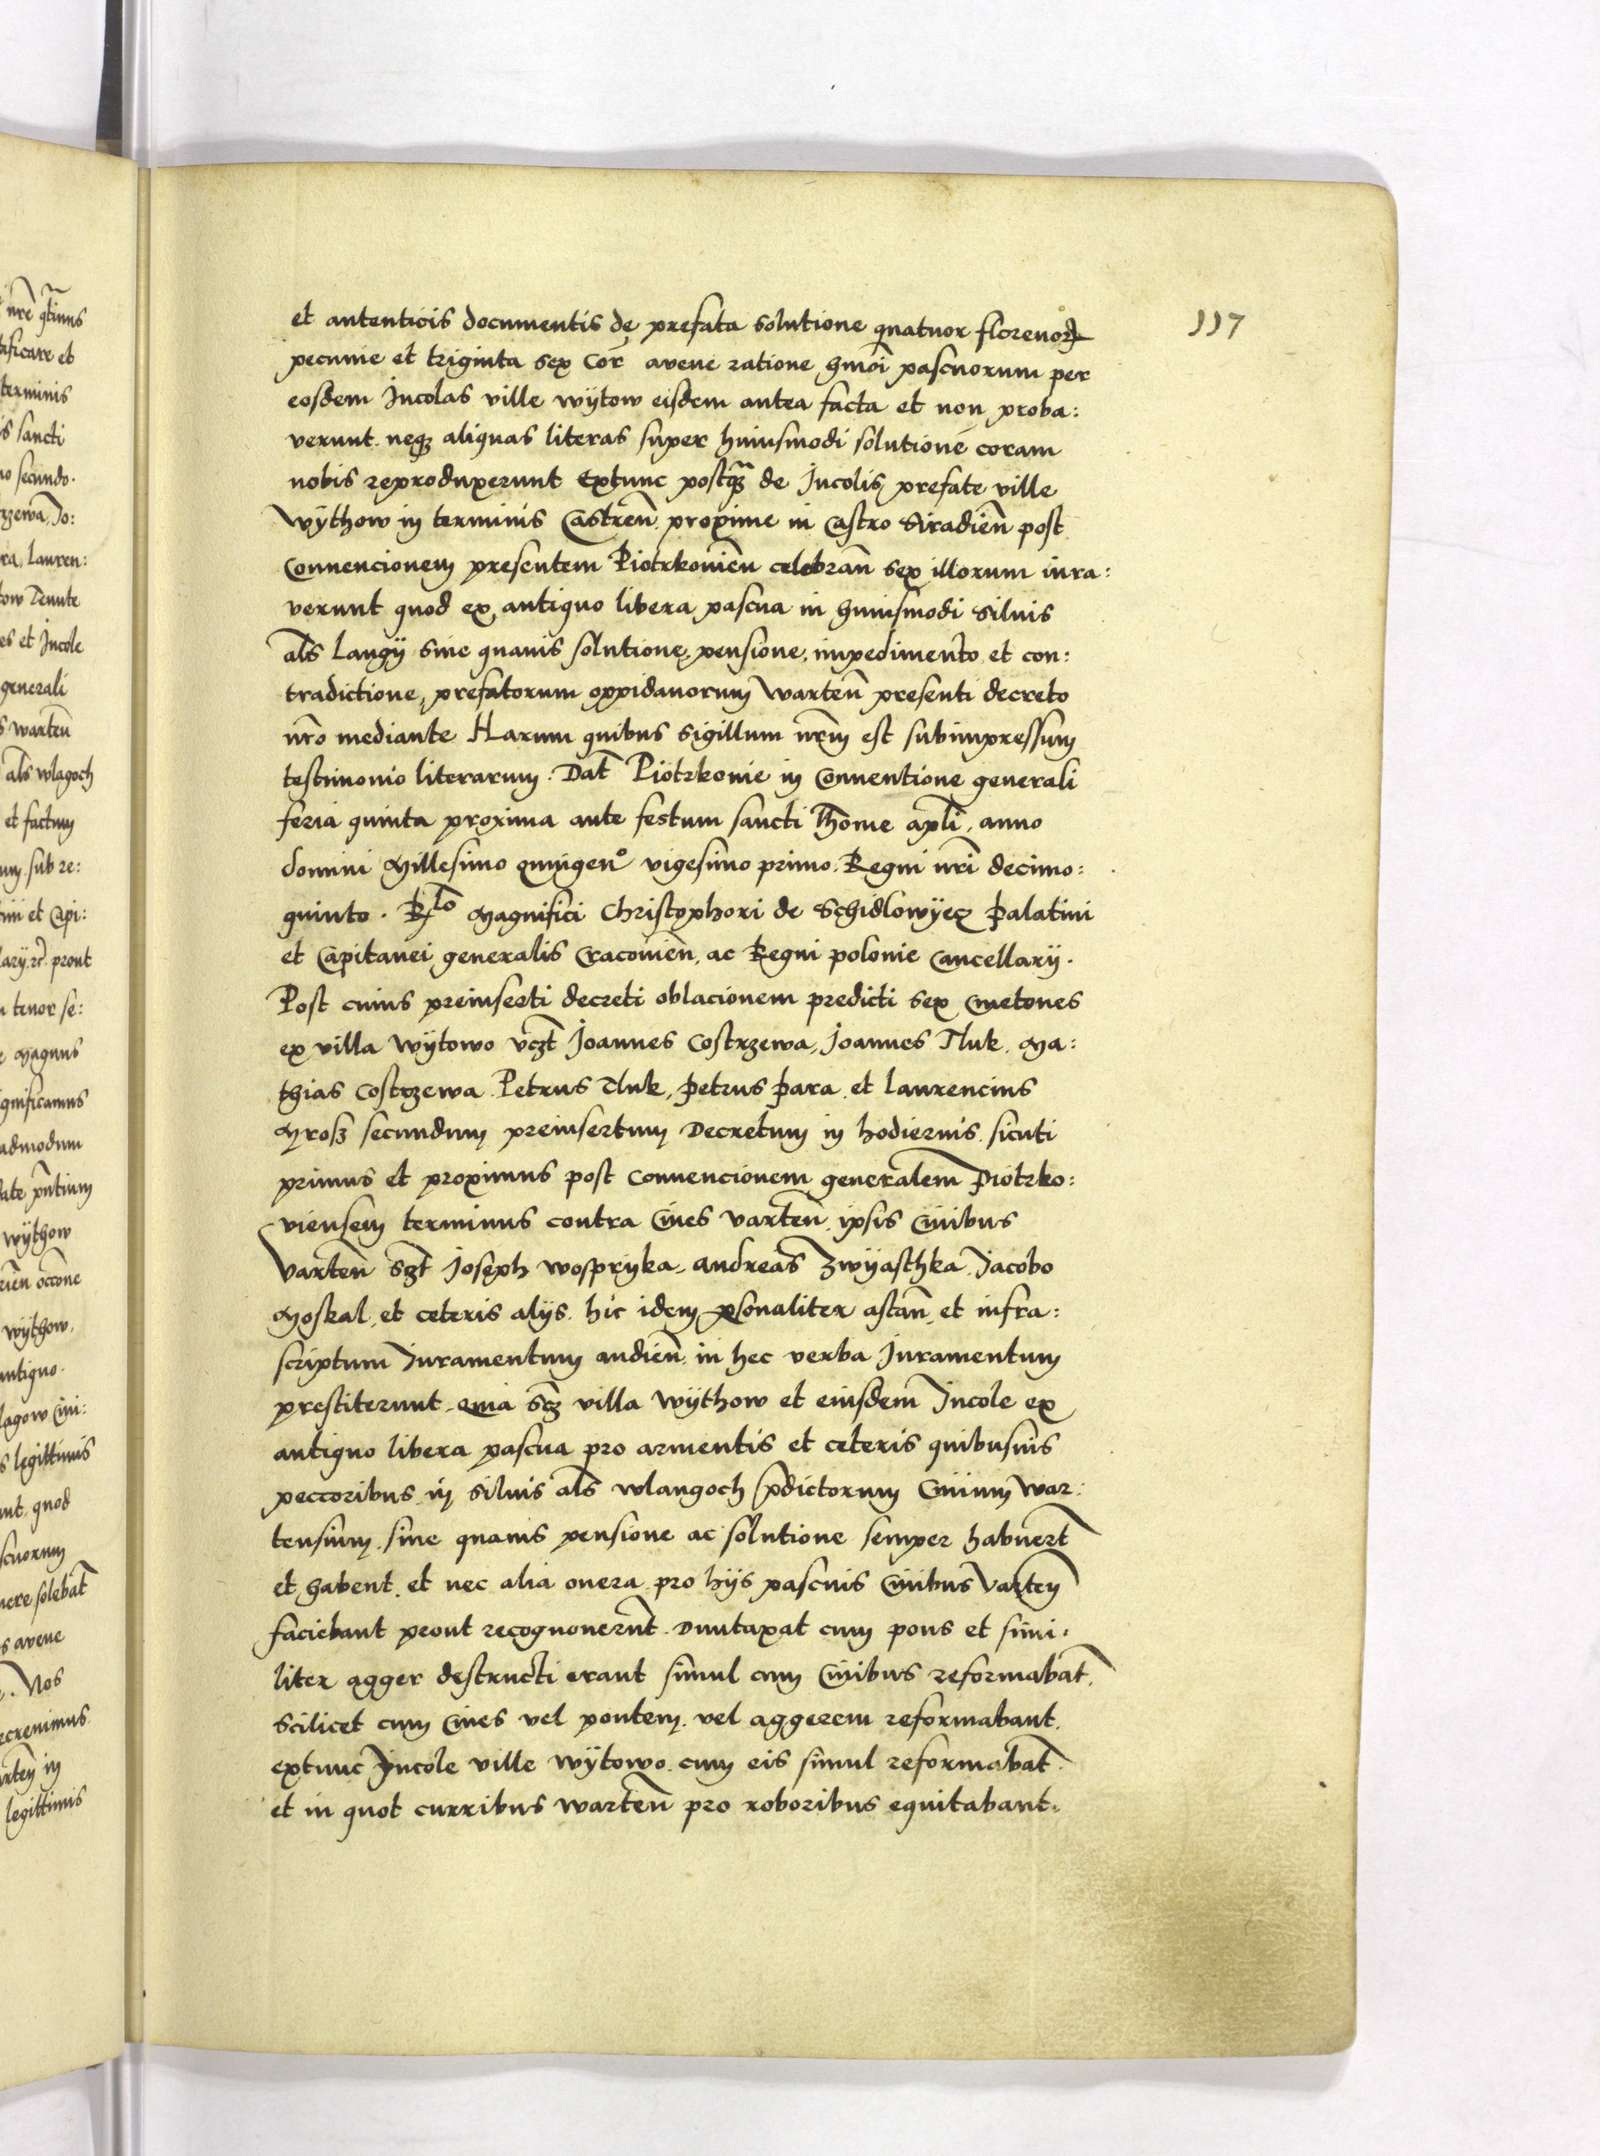 117
et autenticis documentis de prefata solutione quatuor florenor
pecunie et triginta sex Cor avene ratione hmoi pascuorum per
eosdem Incolas ville wÿtow eisdem antea facta et non proba:
verunt. neqz aliquas literas super huiusmodi solutione coram
nobis reproduxerunt Extunc postqz de Incolis prefate ville
Wÿthow in terminis Castren. proxime in Castro Siradien post
Convencionem presentem Piotrkovien celebran sex illorum iura:
verunt quod ex antiquo libera pascua in huiusmodi Silvis
als Langÿ sine quavis solutione, pensione, impedimento et con:
tradictione, prefatorum oppidanorum Warten presenti decreto
nro mediante Harum quibus Sigillum nrm est subimpressum
testimonio literarum. Dat Piotrkovie in Conventione generali
feria quinta proxima ante festum sancti Thome apli, anno
domini Millesimo quingeno vigesimo primo. Regni nri decimo:
quinto. Rlo Magnifici Christophori de Schidlowÿecz Palatini
et Capitanei generalis Cracovien, ac Regni polonie Cancellarÿ.
Post cuius preinserti decreti oblacionem predicti sex Cmetones
ex villa Wÿtowo vczt Joannes Costrzewa, Joannes Tluk, Ma:
thias Costrzewa. Petrus Tluk, Petrus Para, et Laurencius
Mrosz secundum preinsertum Decretum in hodiernis. sicuti
primus et proximus post Convencionem generalem Piotrko:
viensem terminus contra Cives Varten. ipsis Civibus
Varten sczt Joseph wosprÿka, Andreas Zwÿaschka, Jacobo
Moskal, et ceteris alÿs. hic idem psonaliter astan, et infra:
scriptum Iuramentum audien. in hec verba Iuramentum
prestiterunt, quia scz villa Wÿthow et eiusdem Incole ex
antiquo libera pascua pro armentis et ceteris quibusvis
peccoribus in silvis als wlangoch pdictorum Civium War:
tensium, sine quavis pensione ac solutione semper habuert
et habent. et nec alia onera pro hÿs pascuis Civibus Varten
faciebant prout recognoverunt. Duntaxat cum pons et simi:
liter agger destructi erant simul cum Civibus reformabat.
Scilicet cum Cives vel pontem. vel aggerem reformabant.
extunc Incole ville Wÿtowo. cum eis simul reformabat.
et in quot curribus warten pro roboribus equitabant.